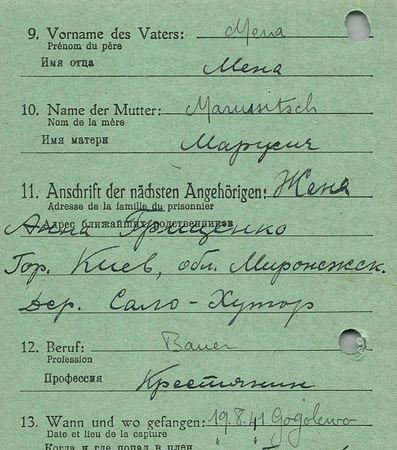 9. Vorname des Vaters: Mena
Prénom du père
Имя отца Мена
10. Name der Mutter: Marussitsch
Nom de la mère
Имя матери Марусич
11. Anschrift der nächsten Angehörigen: Жена
Adresse de la famille du prisonnier
Адрес ближайших родственников
Анна Грищенко
Гор. Киев, обл. Миронежск.
дер. Сало-Хутор
12. Beruf: Bauer
Profession
Профессия Крестянин
13. Wann und wo gefangen: 19.8.41 Gogolewo
Date et lieu de la capture
Когда и где попал в плен " "